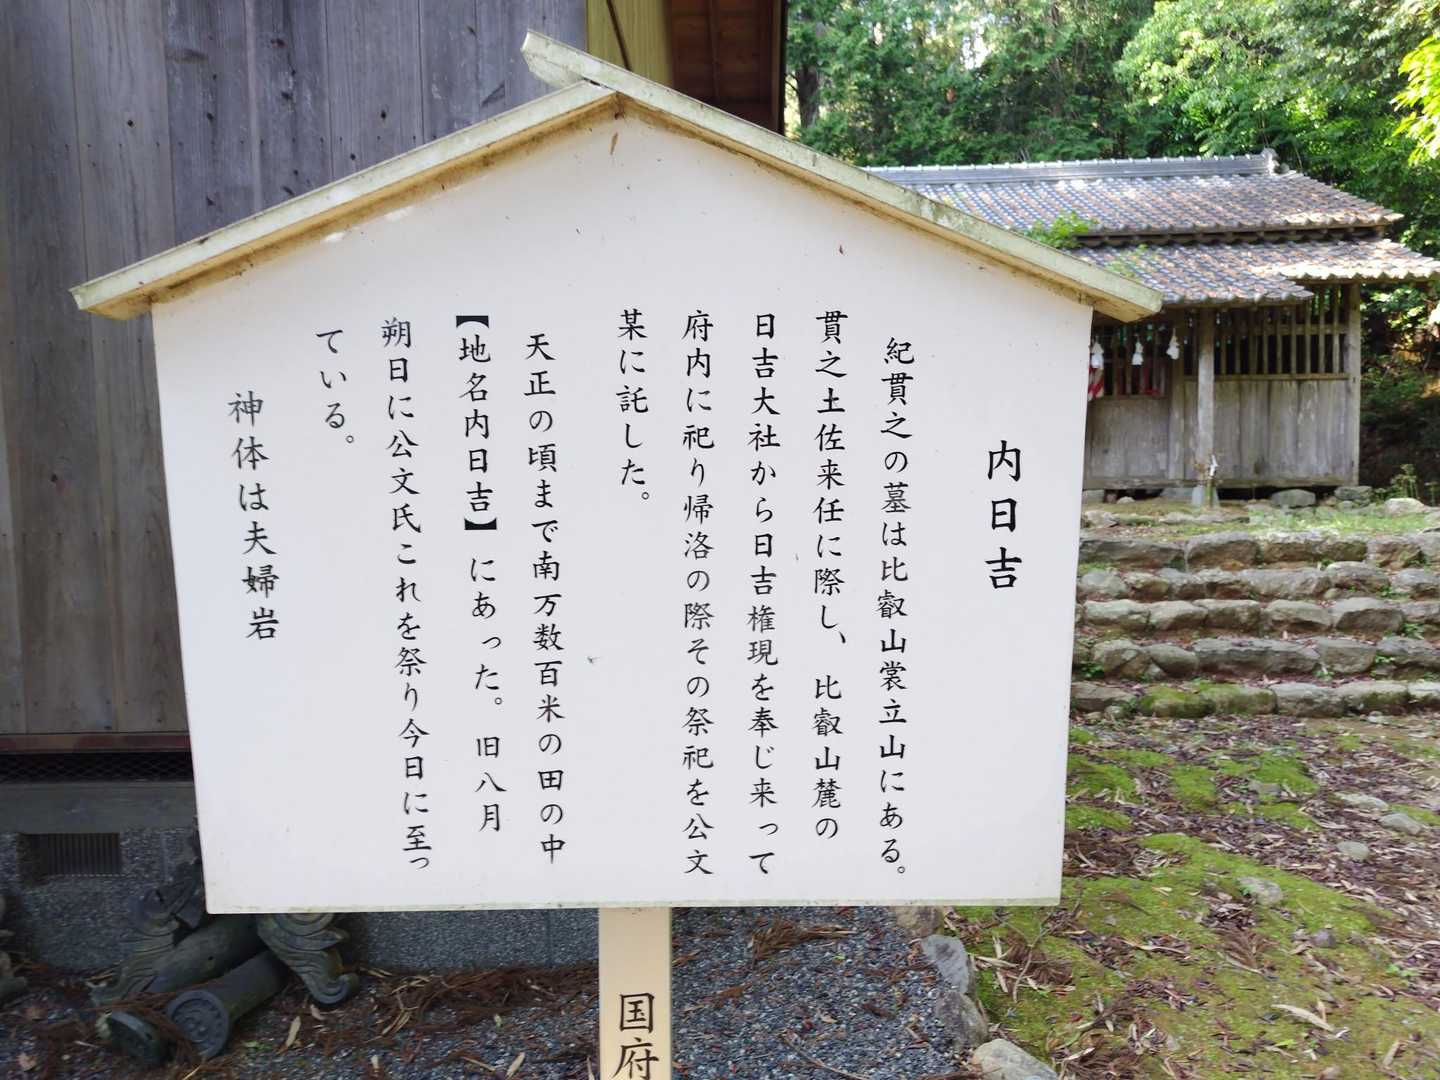 内日吉
紀貫之の墓は比叡山裳立山にある。
貫之土佐来任に際し、比叡山麓の
日吉大社から日吉権現を奉じ来って
府内に祀り帰洛の際その祭祀を公文
某に託した。
天正の頃まで南万数百米の田の中
【地名内日吉】にあった。旧八月
朔日に公文氏これを祭り今日に至っ
ている。
神体は夫婦岩
国府